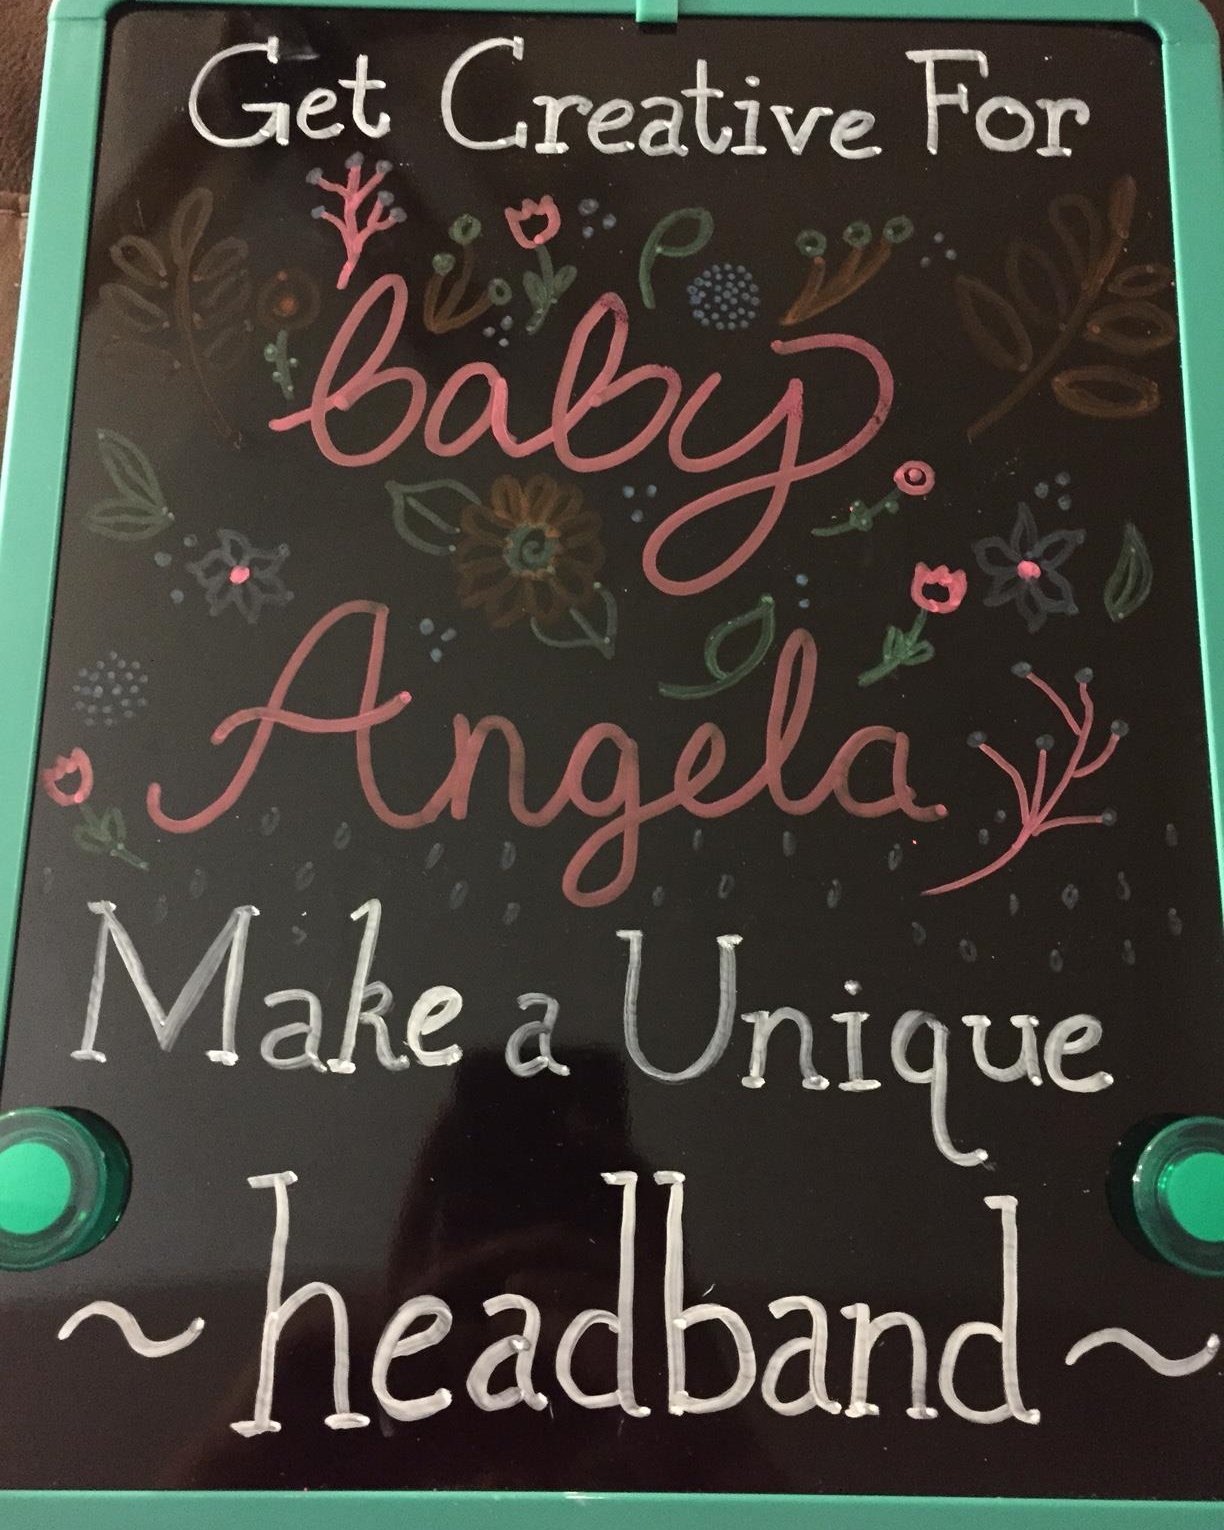 Get Creative For
baby
Angela
Make a Unique
~headband~